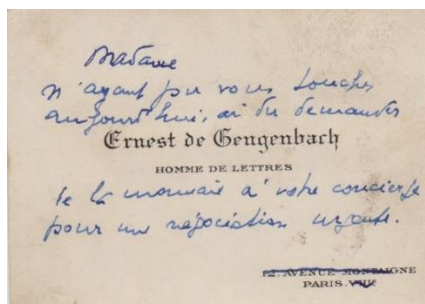 Madame
n'ayant pu vous toucher
aujourd'hui, ai du demander
Ernest de Gengenbach
HOMME DE LETTRES
de la monnaie à votre concierge
pour une négociation urgente.
12. AVENUE MONTAIGNE
PARIS. VIIIe